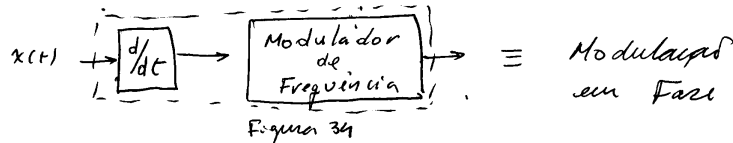 x(t)
d/dt
Modulador
de
Frequência
≡
Modulação
em Fase
Figura 34